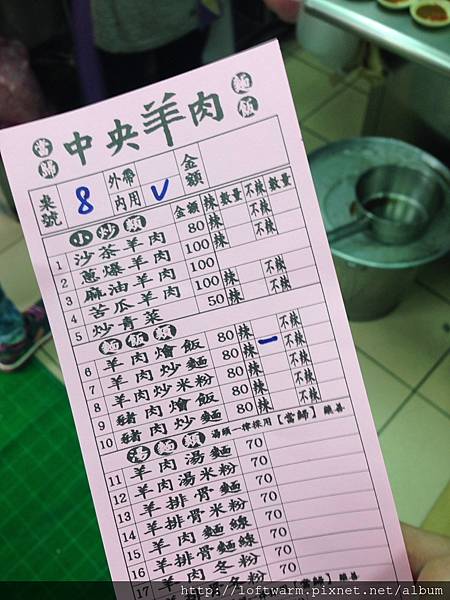 當歸 中央羊肉 麵飯
桌號 8 外帶 內用 V 金額
小炒類 金額 辣 數量 不辣 數量
1 沙茶羊肉 80 辣 不辣
2 蔥爆羊肉 100 辣 不辣
3 麻油羊肉 100
4 苦瓜羊肉 100 辣 不辣
5 炒青菜 50 辣 不辣
麵飯類
6 羊肉燴飯 80 辣 一 不辣
7 羊肉炒麵 80 辣 不辣
8 羊肉炒米粉 80 辣 不辣
9 豬肉燴飯 80 辣 不辣
10 豬肉炒麵 80 辣 不辣
湯麵類 湯頭一律採用【當歸】
11 羊肉湯麵 70
12 羊肉湯米粉 70
13 羊排骨麵 70
14 羊排骨米粉 70
15 羊肉麵線 70
16 羊排骨麵線 70
17 羊肉冬粉 70
http://loftwarm.pixnet.net/album